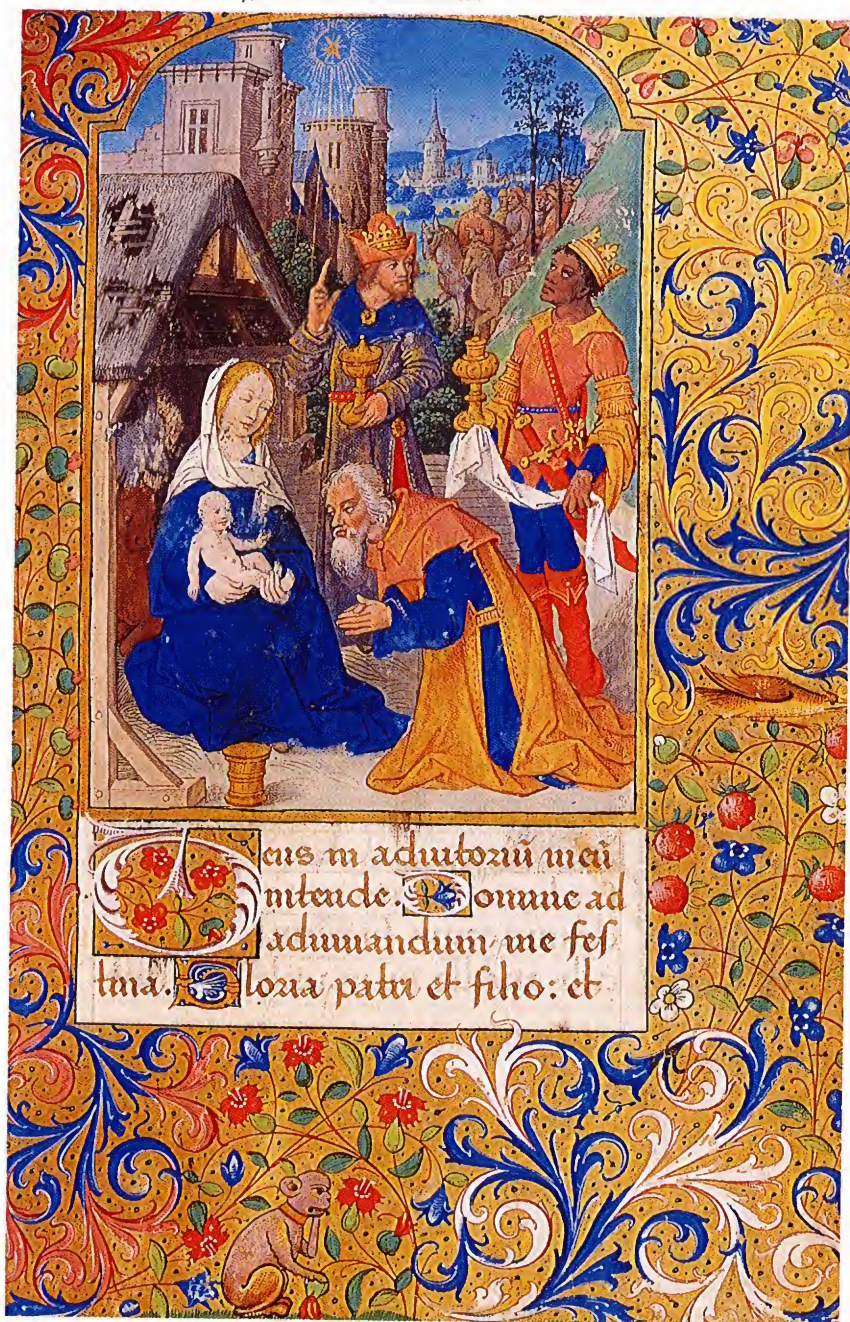 Deus in adiutoriū meū
intende. Domine ad
adiuuandum me fes
tina. Gloria patri et filio: et